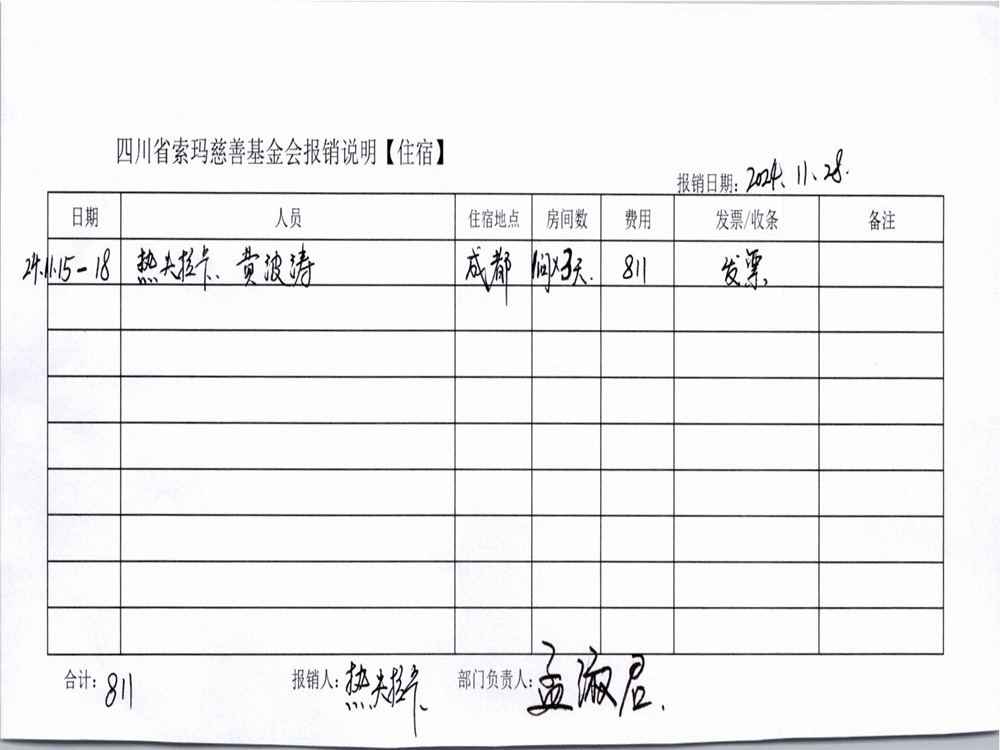 四川省索玛慈善基金会报销说明【住宿】
报销日期：2024.11.28.
日期 人员 住宿地点 房间数 费用 发票/收条 备注
24.11.15-18 热夫拉卡、黄波涛 成都 1间×3天. 811 发票
合计：811 报销人：热夫拉卡 部门负责人：孟淑君.